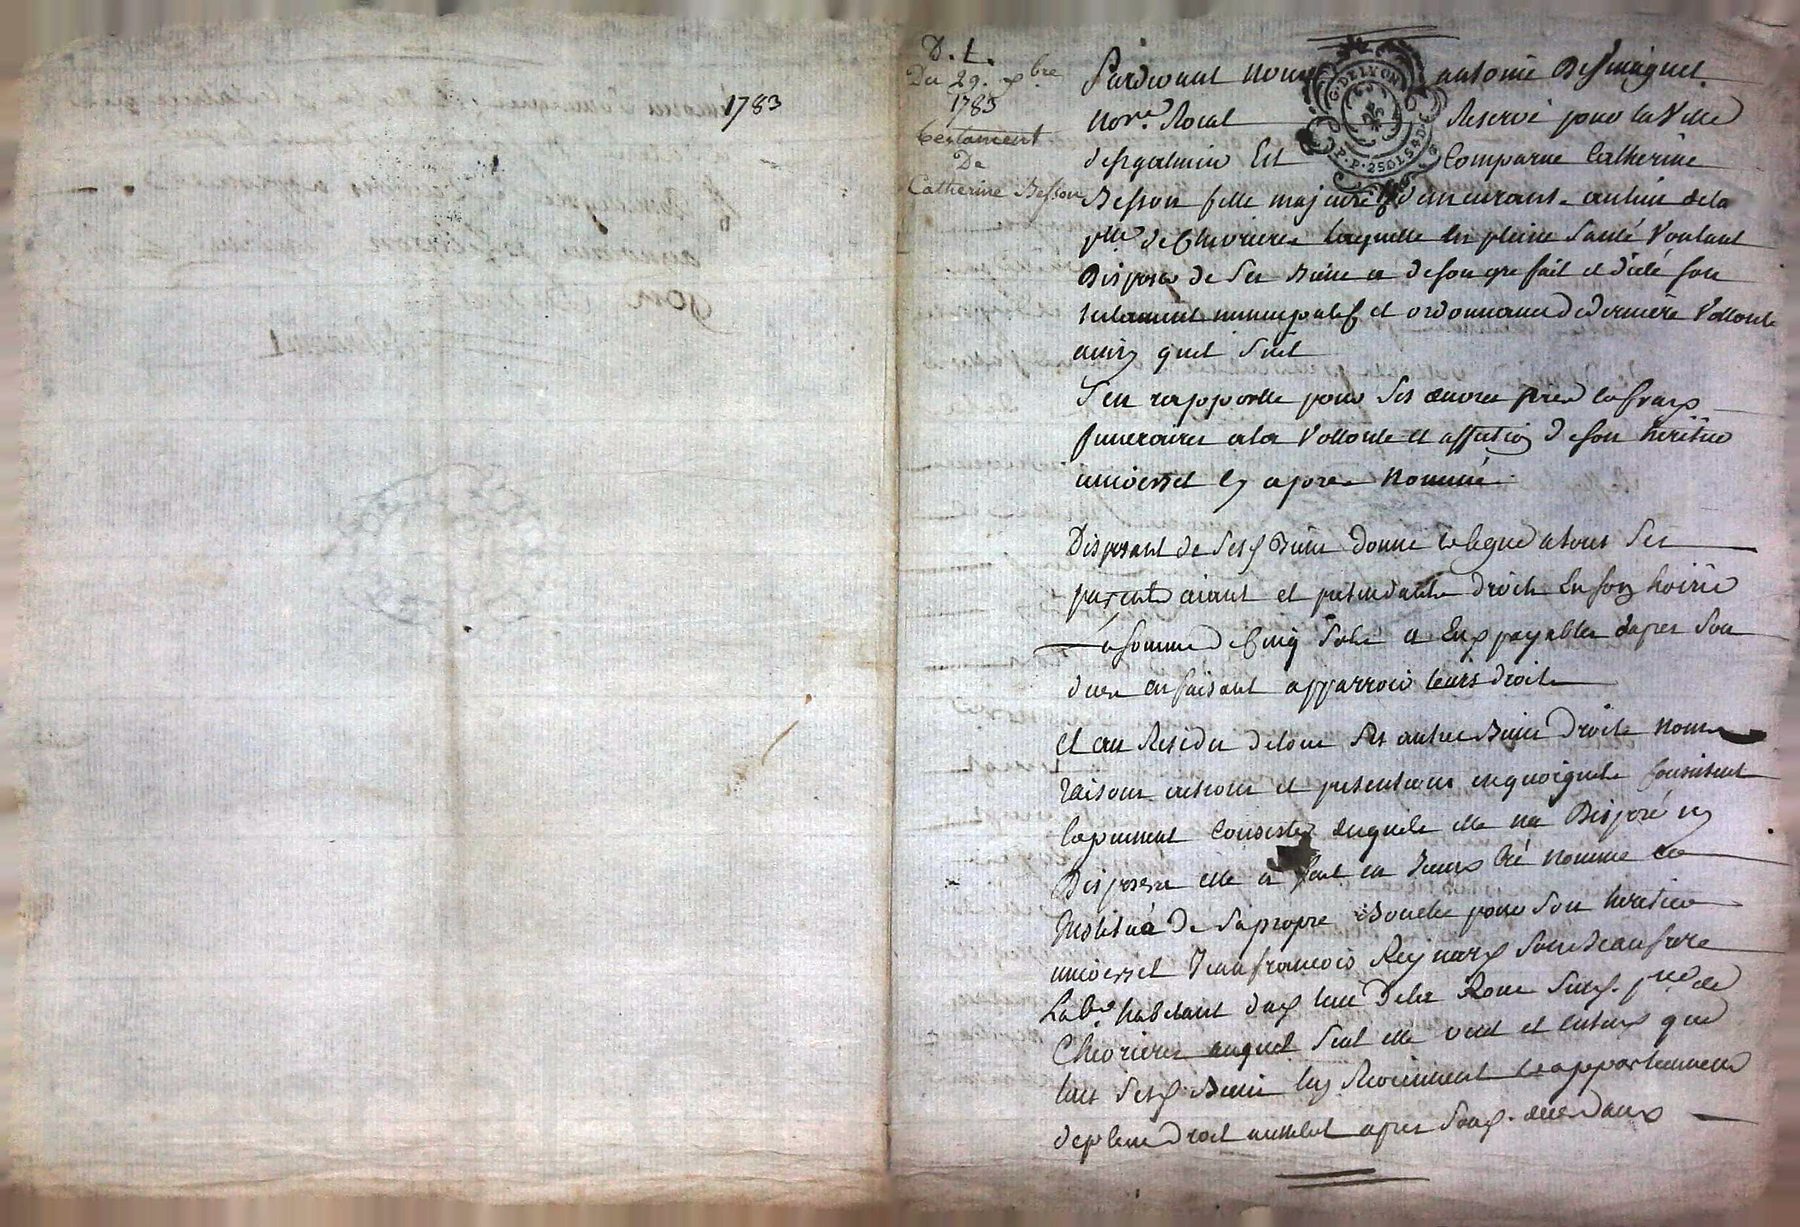 1783
D. L.
Du 29. xbre
1783
testament
De
Catherine Besson
G. DE LYON
P. P. 2 SOLS 4 D.
Pardevant nous antoine Desmaquet
nore. Roial Reservé pour la Ville
destgalmier Est Comparue Catherine
Besson fille majeure demeurant au lieu dela
psse de Chevrieres laquelle en pleine Santé Voulant
Disposer de Ses Biens a deson gre fait et dicté son
testament nuncupatif et ordonnance de derniere Vollonte
ainsy quil Suit
S'en rapporte pour Ses œuvres pies et frais
funeraires ala Vollonte et affection de son heritier
universel cy apres Nommé
Disposant de Sesd Biens donne et legue a tous Ses
parents aiant et pretendants droits En son hoirie
la somme de Cinq Sols a Eux payables apres Son
deces en faisant apparroir leurs droits
Et au Residu de tous Ses autres Biens Droits Noms
raisons actions et pretentions en quoiquils
puissent Consister desquels elle na Disposé ny
Disposera elle a fait en Créé Nomme et
Institué De sa propre Bouche pour Son heritier
universel Jean francois Reynard Son beau frere
Labr. habitant au lieu Dela Roue Susd. psse de
Chevrieres auquel Seul elle veut et entend que
tous Sesd. Biens luy Reviennent et appartiennent
de plein Droit aussitot apres Sond. deces Sans